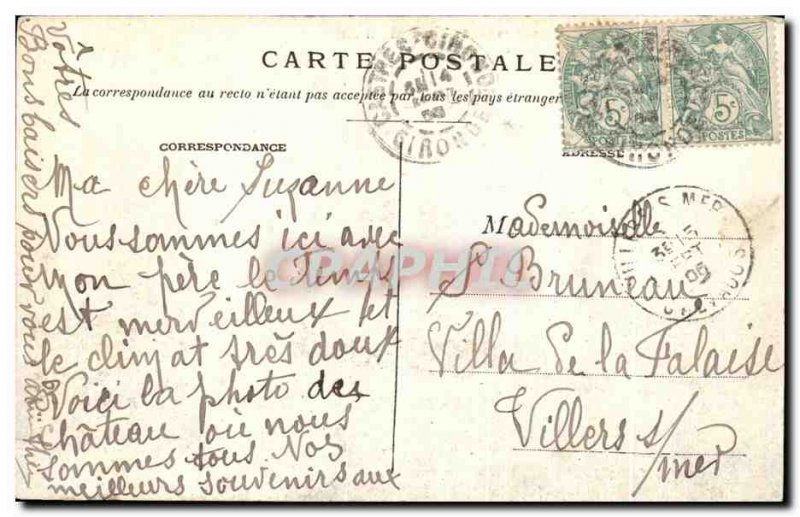 CARTE POSTALE
La correspondance au recto n'étant pas acceptée par tous les pays étranger
CORRESPONDANCE
Ma chère Suzanne
Nous sommes ici avec
mon père le Temps
est merveilleux et
le climat très doux
Voici la photo des
château où nous
sommes tous Nos
meilleurs souvenirs aux
Vôtres
Bons baisers pour vous
ADRESSE
Mademoiselle
S. Bruneau
Villa de la Falaise
Villers s/
mer
5c
POSTES
5c
POSTES
GIRONDE
S MER
CALVADOS
CARAPHIL